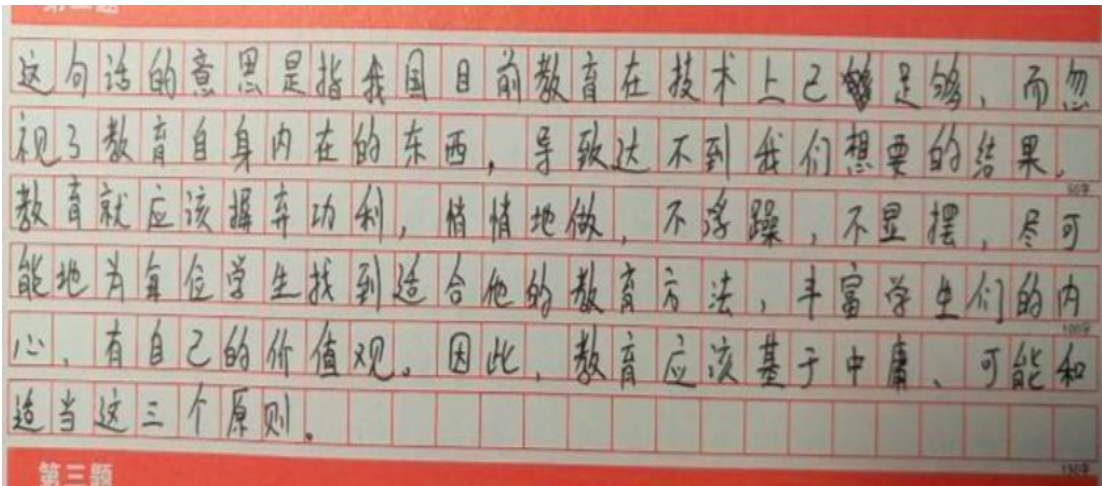 这句话的意思是指我国目前教育在技术上已足够，而忽
视了教育自身内在的东西，导致达不到我们想要的结果。
50字
教育就应该摒弃功利，悄悄地做，不浮躁，不显摆，尽可
能地为每位学生找到适合他的教育方法，丰富学生们的内
100字
心，有自己的价值观。因此，教育应该基于中庸、可能和
适当这三个原则。
150字
第三题